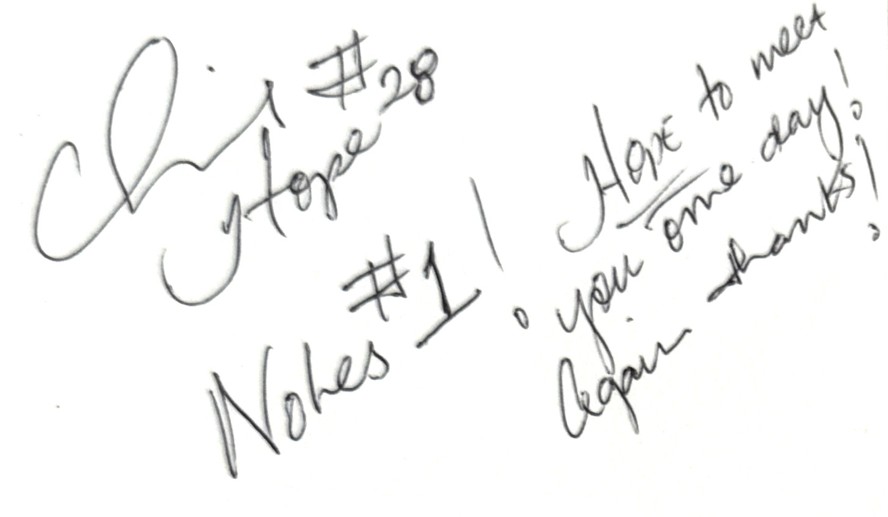 Chris #28
Hope
Nohes #1!
Hope to meet
you ome day!
Again thanks!